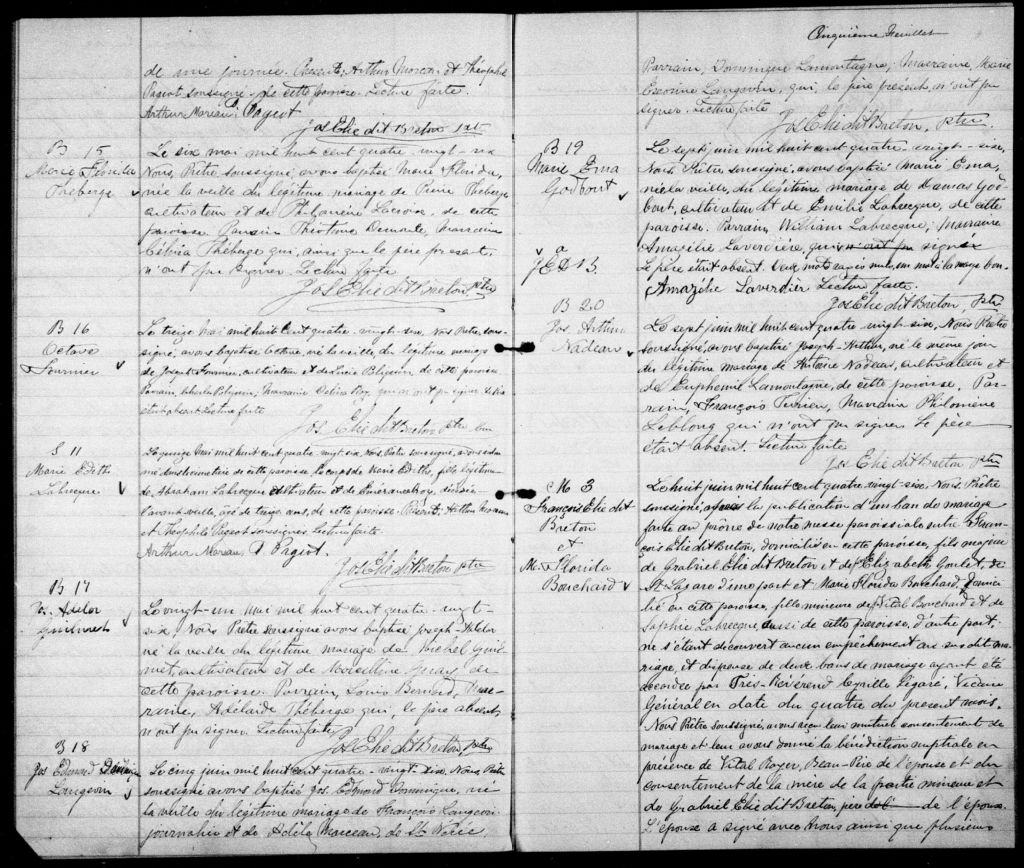 de une journée. Présents, Arthur Morceau et Théophile
Pagiot soussignés de cette paroisse. Lecture faite
Arthur Marceau P. Pagiot
Jos Elie dit Breton ptre
B 15
Marie Florida
Théberge
Le six mai mil huit cent quatre-vingt-six
Nous, Prêtre soussigné, avons baptisé Marie Florida,
née la veille du légitime mariage de Pierre Théberge
cultivateur et de Philomène Lacroix de cette
paroisse. Parrain Théotime marraine
Célésia Théberge qui, ainsi que le père présent,
n'ont pu signer. Lecture faite
Jos Elie dit Breton, ptre
B 16
Octave
Fournier
Le treize mai mil huit cent quatre-vingt-six, Nous Prêtre sous-
signé, avons baptisé Octave, né la veille, du légitime mariage
de Joseph Fournier, cultivateur et de Lucie de cette paroisse
Parrain, Marraine Célina Roy, qui n'ont pu signer. Le père
était absent. Lecture faite
Jos. Elie dit Breton ptre
S 11
Marie Edith
Labrecque
Le quinze mai mil huit cent quatre-vingt-six, Nous Prêtre soussigné, avons inhu-
mé dans le cimetière de cette paroisse le corps de Marie Edith, fille légitime
de Abraham Labrecque cultivateur et de décédée
l'avant veille, âgée de treize ans, de cette paroisse. Présents, Arthur Morceau
et Théophile Pagiot soussignés. Lecture faite.
Arthur Marceau P. Pagiot.
Jos Elie dit Breton ptre
B 17
Jos. Adélor
Guilmet
Le vingt-un mai mil huit cent quatre-vingt-
six, Nous Prêtre soussigné avons baptisé Joseph-Adélor
né la veille du légitime mariage de Michel Guil-
met, cultivateur et de Gray de
cette paroisse. Parrain, Louis Bernard, Mar-
raine, Adélaïde Théberge qui, le père absent,
n'ont pu signer. Lecture faite
Jos Elie dit Breton, ptre
B 18
Jos Edmond Dominique
Langevin
Le cinq juin mil huit cent quatre-vingt-six, Nous Prêtre
soussigné avons baptisé Jos. Edmond Dominique, né
la veille du légitime mariage de François Langevin
journalier et de Adèle Marceau, de
Cinquième Feuillet
Parrain, Dominique Lamontagne; Marraine, Marie
Langevin, qui, le père présent, n'ont pu
signer. Lecture faite
Jos Elie dit Breton, ptre
B 19
Marie Ema
Godbout
Le sept juin mil huit cent quatre-vingt-six,
Nous Prêtre soussigné, avons baptisé Marie Ema,
née la veille, du légitime mariage de Damas God-
bout, cultivateur et de Emilie Labrecque, de cette
paroisse. Parrain, William Labrecque; Marraine
Amazélie Laverdière, qui n'ont pu signer
Le père était absent. Deux mots rayés nuls, un mot à la marge bon.
a
J E D B.
Amazélie Laverdier Lecture faite.
Jos Elie dit Breton, ptre
B 20
Jos. Arthur
Nadeau
Le sept juin mil huit cent quatre-vingt-six, Nous Prêtre
soussigné, avons baptisé Joseph-Arthur, né le même jour
du légitime mariage de Antoine Nadeau, cultivateur et
de Euphémie Lamontagne, de cette paroisse. Par-
rain, François Terrien, Marraine Philomène
Leblond qui n'ont pu signer. Le père
était absent. Lecture faite
Jos Elie dit Breton, ptre
M 3
François Elie dit
Breton
et
M. Florida
Bouchard
Le huit juin mil huit cent quatre-vingt-six, Nous Prêtre
soussigné, après la publication d'un ban de mariage
faite au prône de notre messe paroissiale entre Fran-
çois Elie dit Breton, domicilié en cette paroisse, fils majeur
de Gabriel Elie dit Breton et de Elizabeth Goulet, de
St-Lazare d'une part et Marie Florida Bouchard, domici-
lié en cette paroisse, fille mineure de Vital Bouchard et de
Sophie Labrecque, aussi de cette paroisse, d'autre part;
ne s'étant découvert aucun empêchement au susdit ma-
riage, et dispense de deux bans de mariage ayant été
accordée par Très-Révérend Cyrille Légaré, Vicaire
Général en date du quatre du présent mois.
Nous Prêtre soussigné, avons reçu leur mutuel consentement de
mariage et leur avons donné la bénédiction nuptiale en
présence de Vital Royer, Beau-Père de l'épouse et du
consentement de la mère de la partie mineure et
de Gabriel Elie dit Breton, père de l'époux.
L'épouse a signé avec nous ainsi que plusieurs